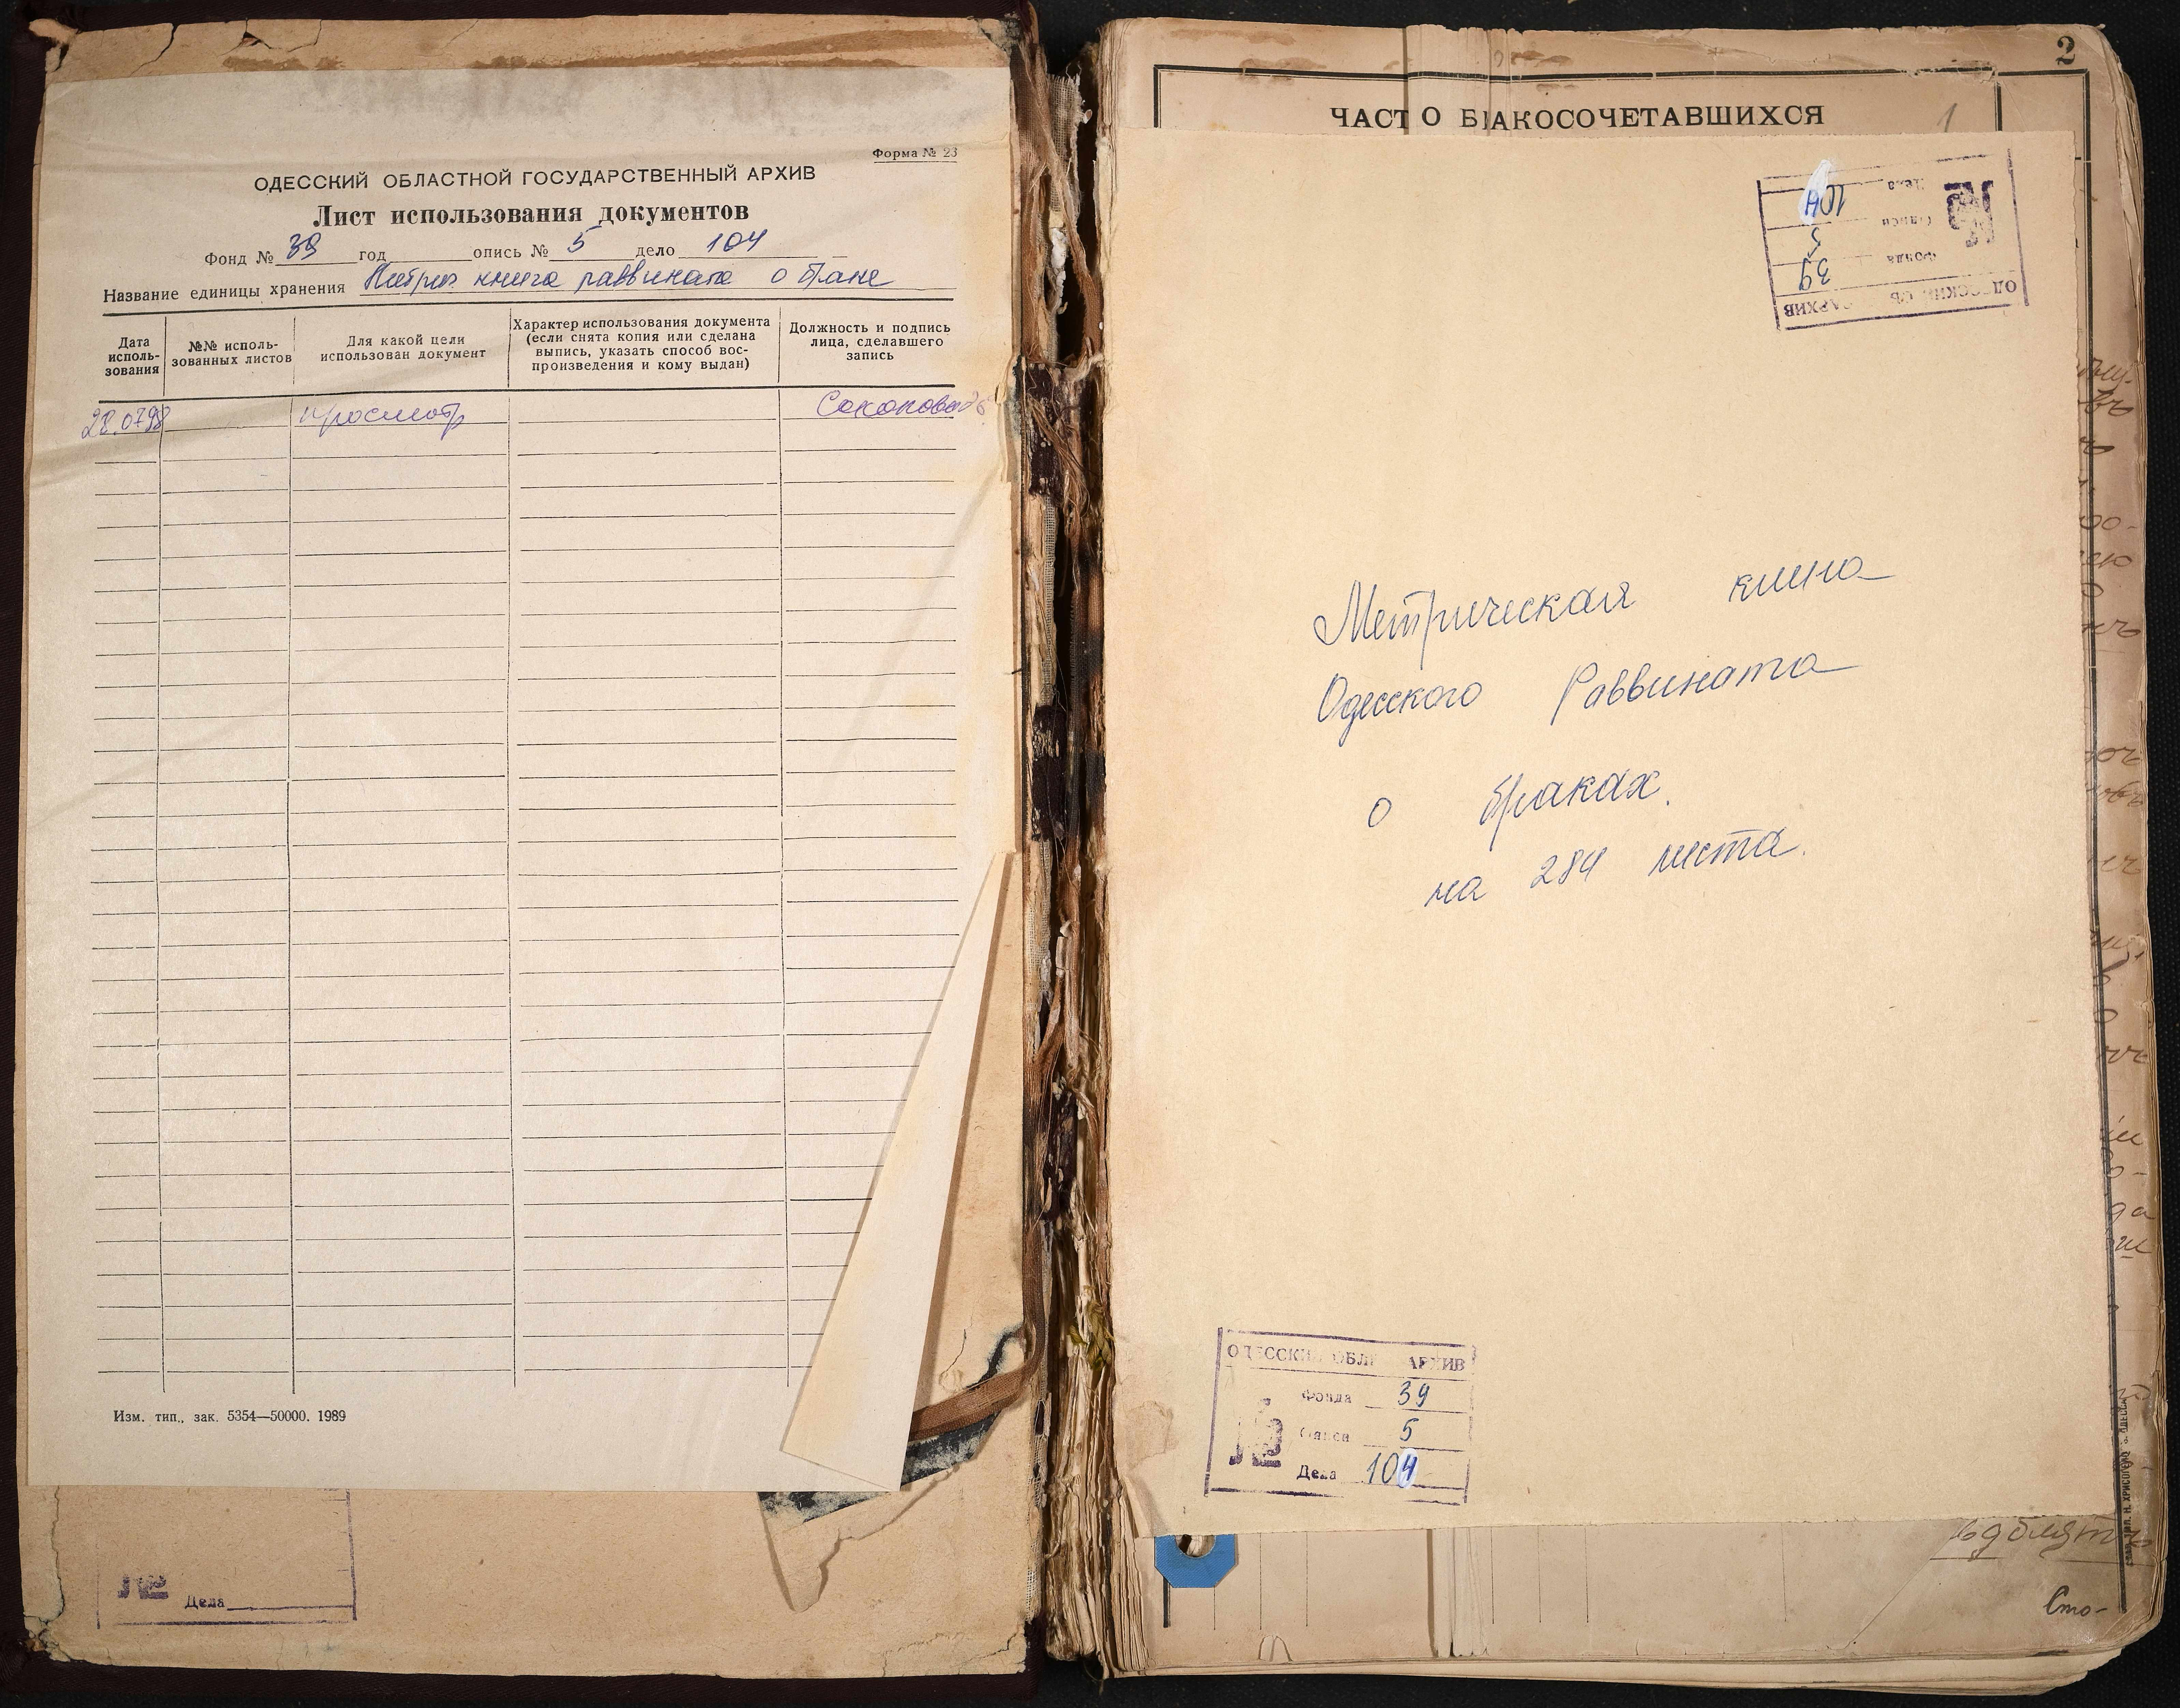 Форма № 23
ОДЕССКИЙ ОБЛАСТНОЙ ГОСУДАРСТВЕННЫЙ АРХИВ
Лист использования документов
Фонд № 39 год опись № 5 дело 104
Название единицы хранения Метрич книга раввината о браке
Дата исполь-зования
№№ исполь-зованных листов
Для какой цели использован документ
Характер использования документа (если снята копия или сделана выпись, указать способ вос-произведения и кому выдан)
Должность и подпись лица, сделавшего запись
28.0798 просмотр
Изм. тип., зак. 5354—50000. 1989
№ Дела
2
ЧАСТ О Б АКОСОЧЕТАВШИХСЯ
1
АРХИВ
Фонда 39
Описи 5
Дела 104
№
Метрическая книга
Одесского Раввината
о браках.
на 284 листа.
ОДЕССКИ ОБЛ АРХИВ
№
Фонда 39
Описи 5
Дела 104
Сто-